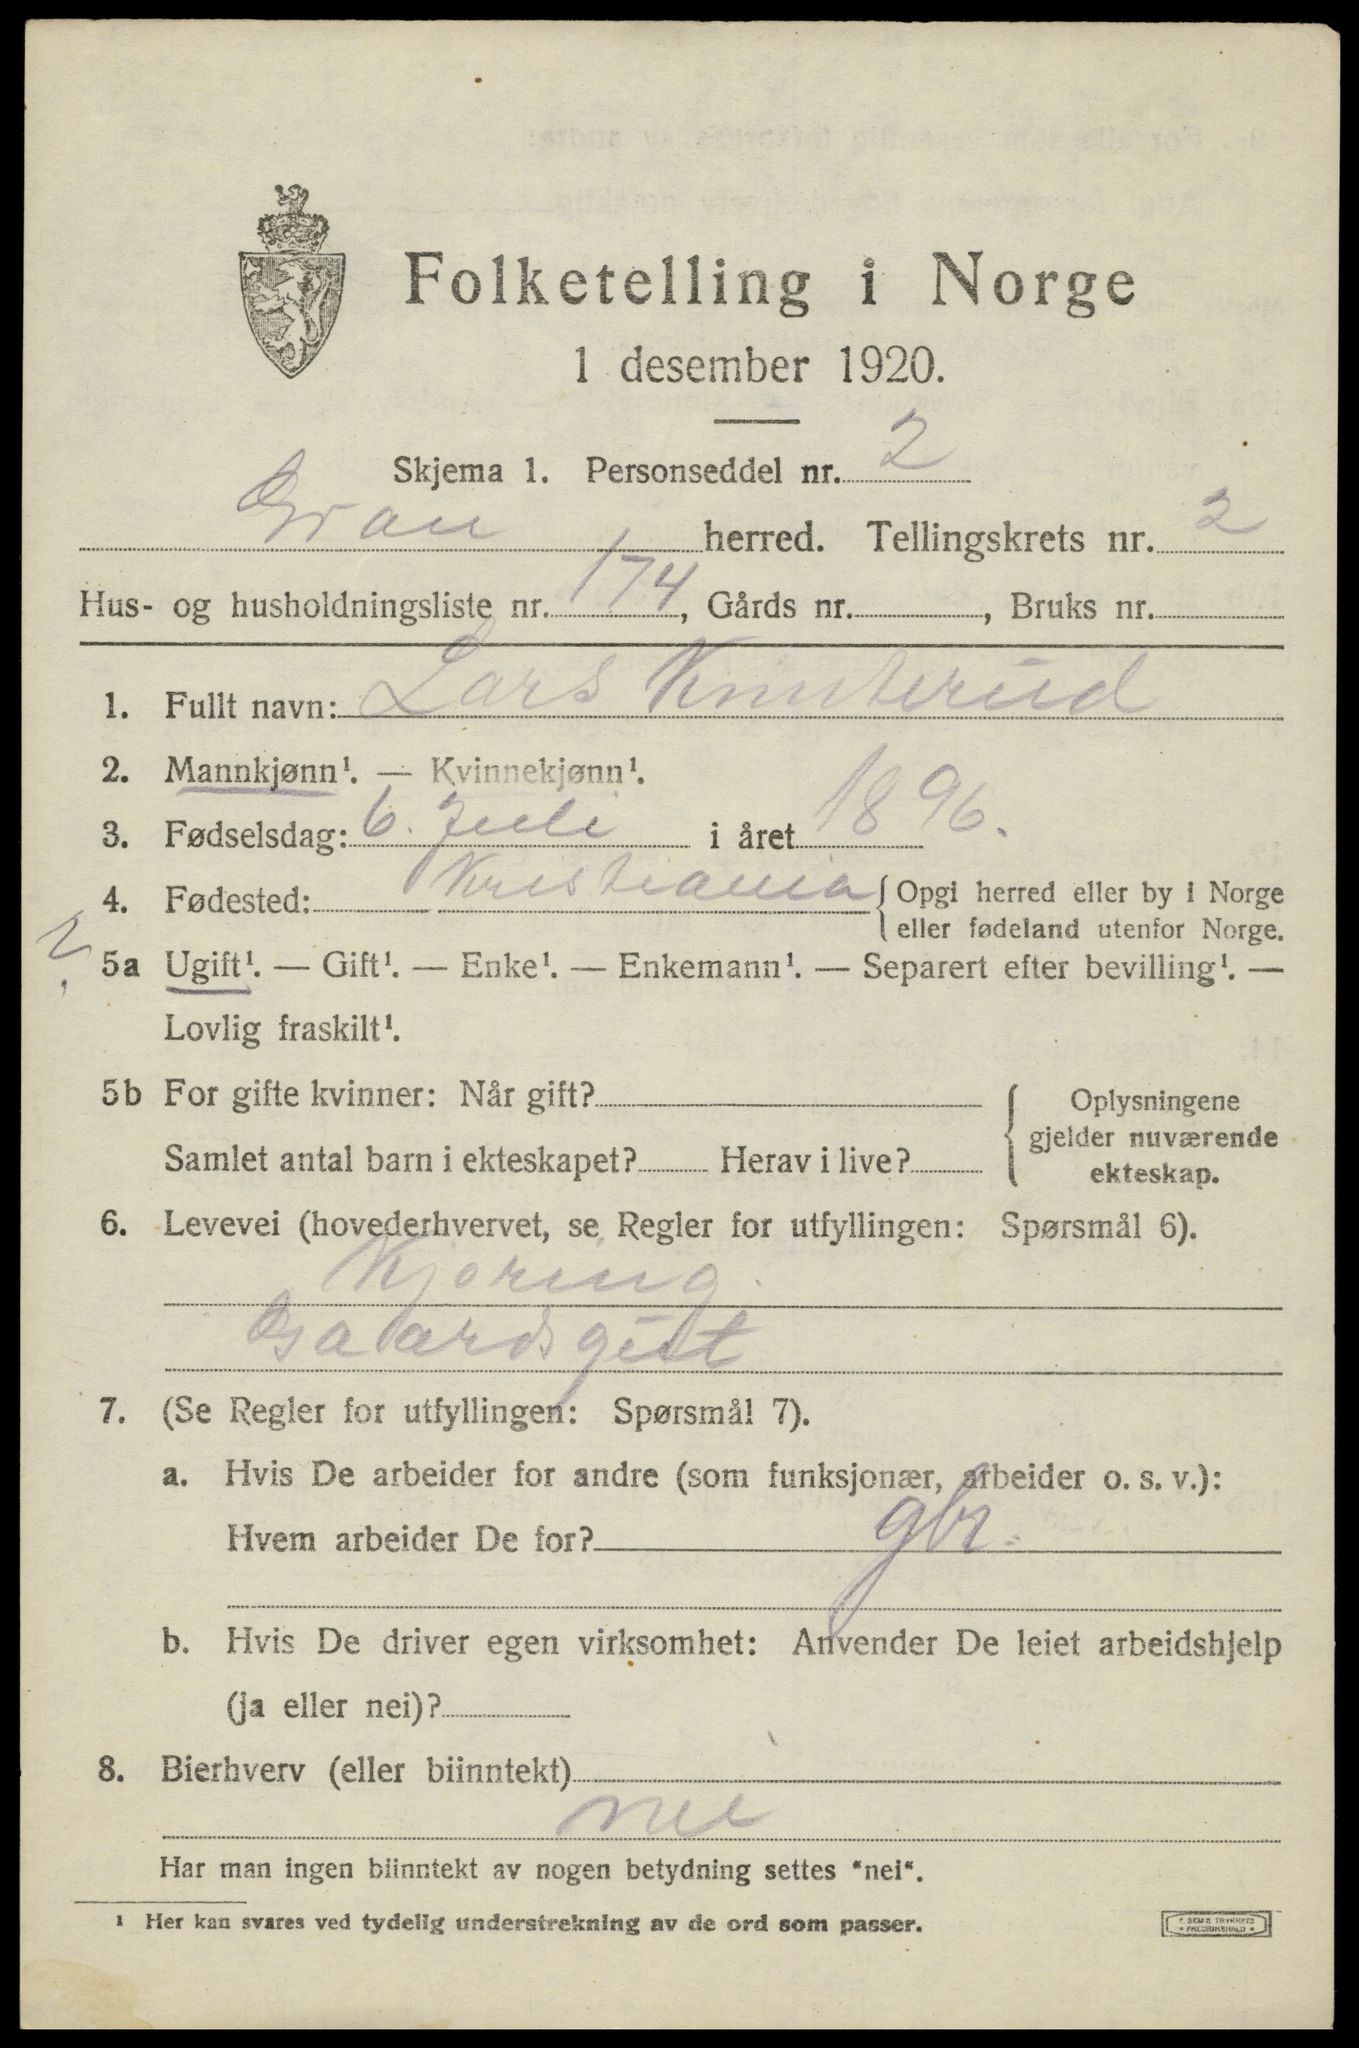 Folketelling i Norge
1 desember 1920.
Skjema 1. Personseddel nr. 2
Gran herred. Tellingskrets nr. 2
Hus- og husholdningsliste nr. 174, Gårds nr. , Bruks nr.
1. Fullt navn: Lars Knuterud
2. Mannkjønn¹. — Kvinnekjønn¹.
3. Fødselsdag: 6. Juli i året 1896.
4. Fødested: Kristiania { Opgi herred eller by i Norge
eller fødeland utenfor Norge.
5a Ugift¹. — Gift¹. — Enke¹. — Enkemann¹. — Separert efter bevilling¹. —
Lovlig fraskilt¹.
5b For gifte kvinner: Når gift?
Samlet antal barn i ekteskapet? Herav i live?
{ Oplysningene
gjelder nuværende
ekteskap.
6. Levevei (hovederhvervet, se Regler for utfyllingen: Spørsmål 6).
Kjøring
Gaardsgut
7. (Se Regler for utfyllingen: Spørsmål 7).
a. Hvis De arbeider for andre (som funksjonær, arbeider o. s. v.):
Hvem arbeider De for? gbr.
b. Hvis De driver egen virksomhet: Anvender De leiet arbeidshjelp
(ja eller nei)?
8. Bierhverv (eller biinntekt)
nei
Har man ingen biinntekt av nogen betydning settes "nei".
¹ Her kan svares ved tydelig understrekning av de ord som passer.